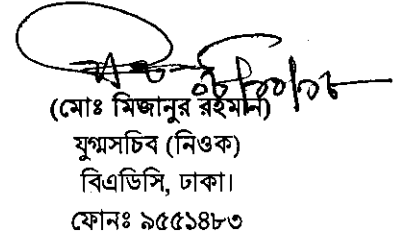 (মোঃ মিজানুর রহমান)
যুগ্মসচিব (নিওক)
বিএডিসি, ঢাকা।
ফোনঃ ৯৫৫১৪৮৩